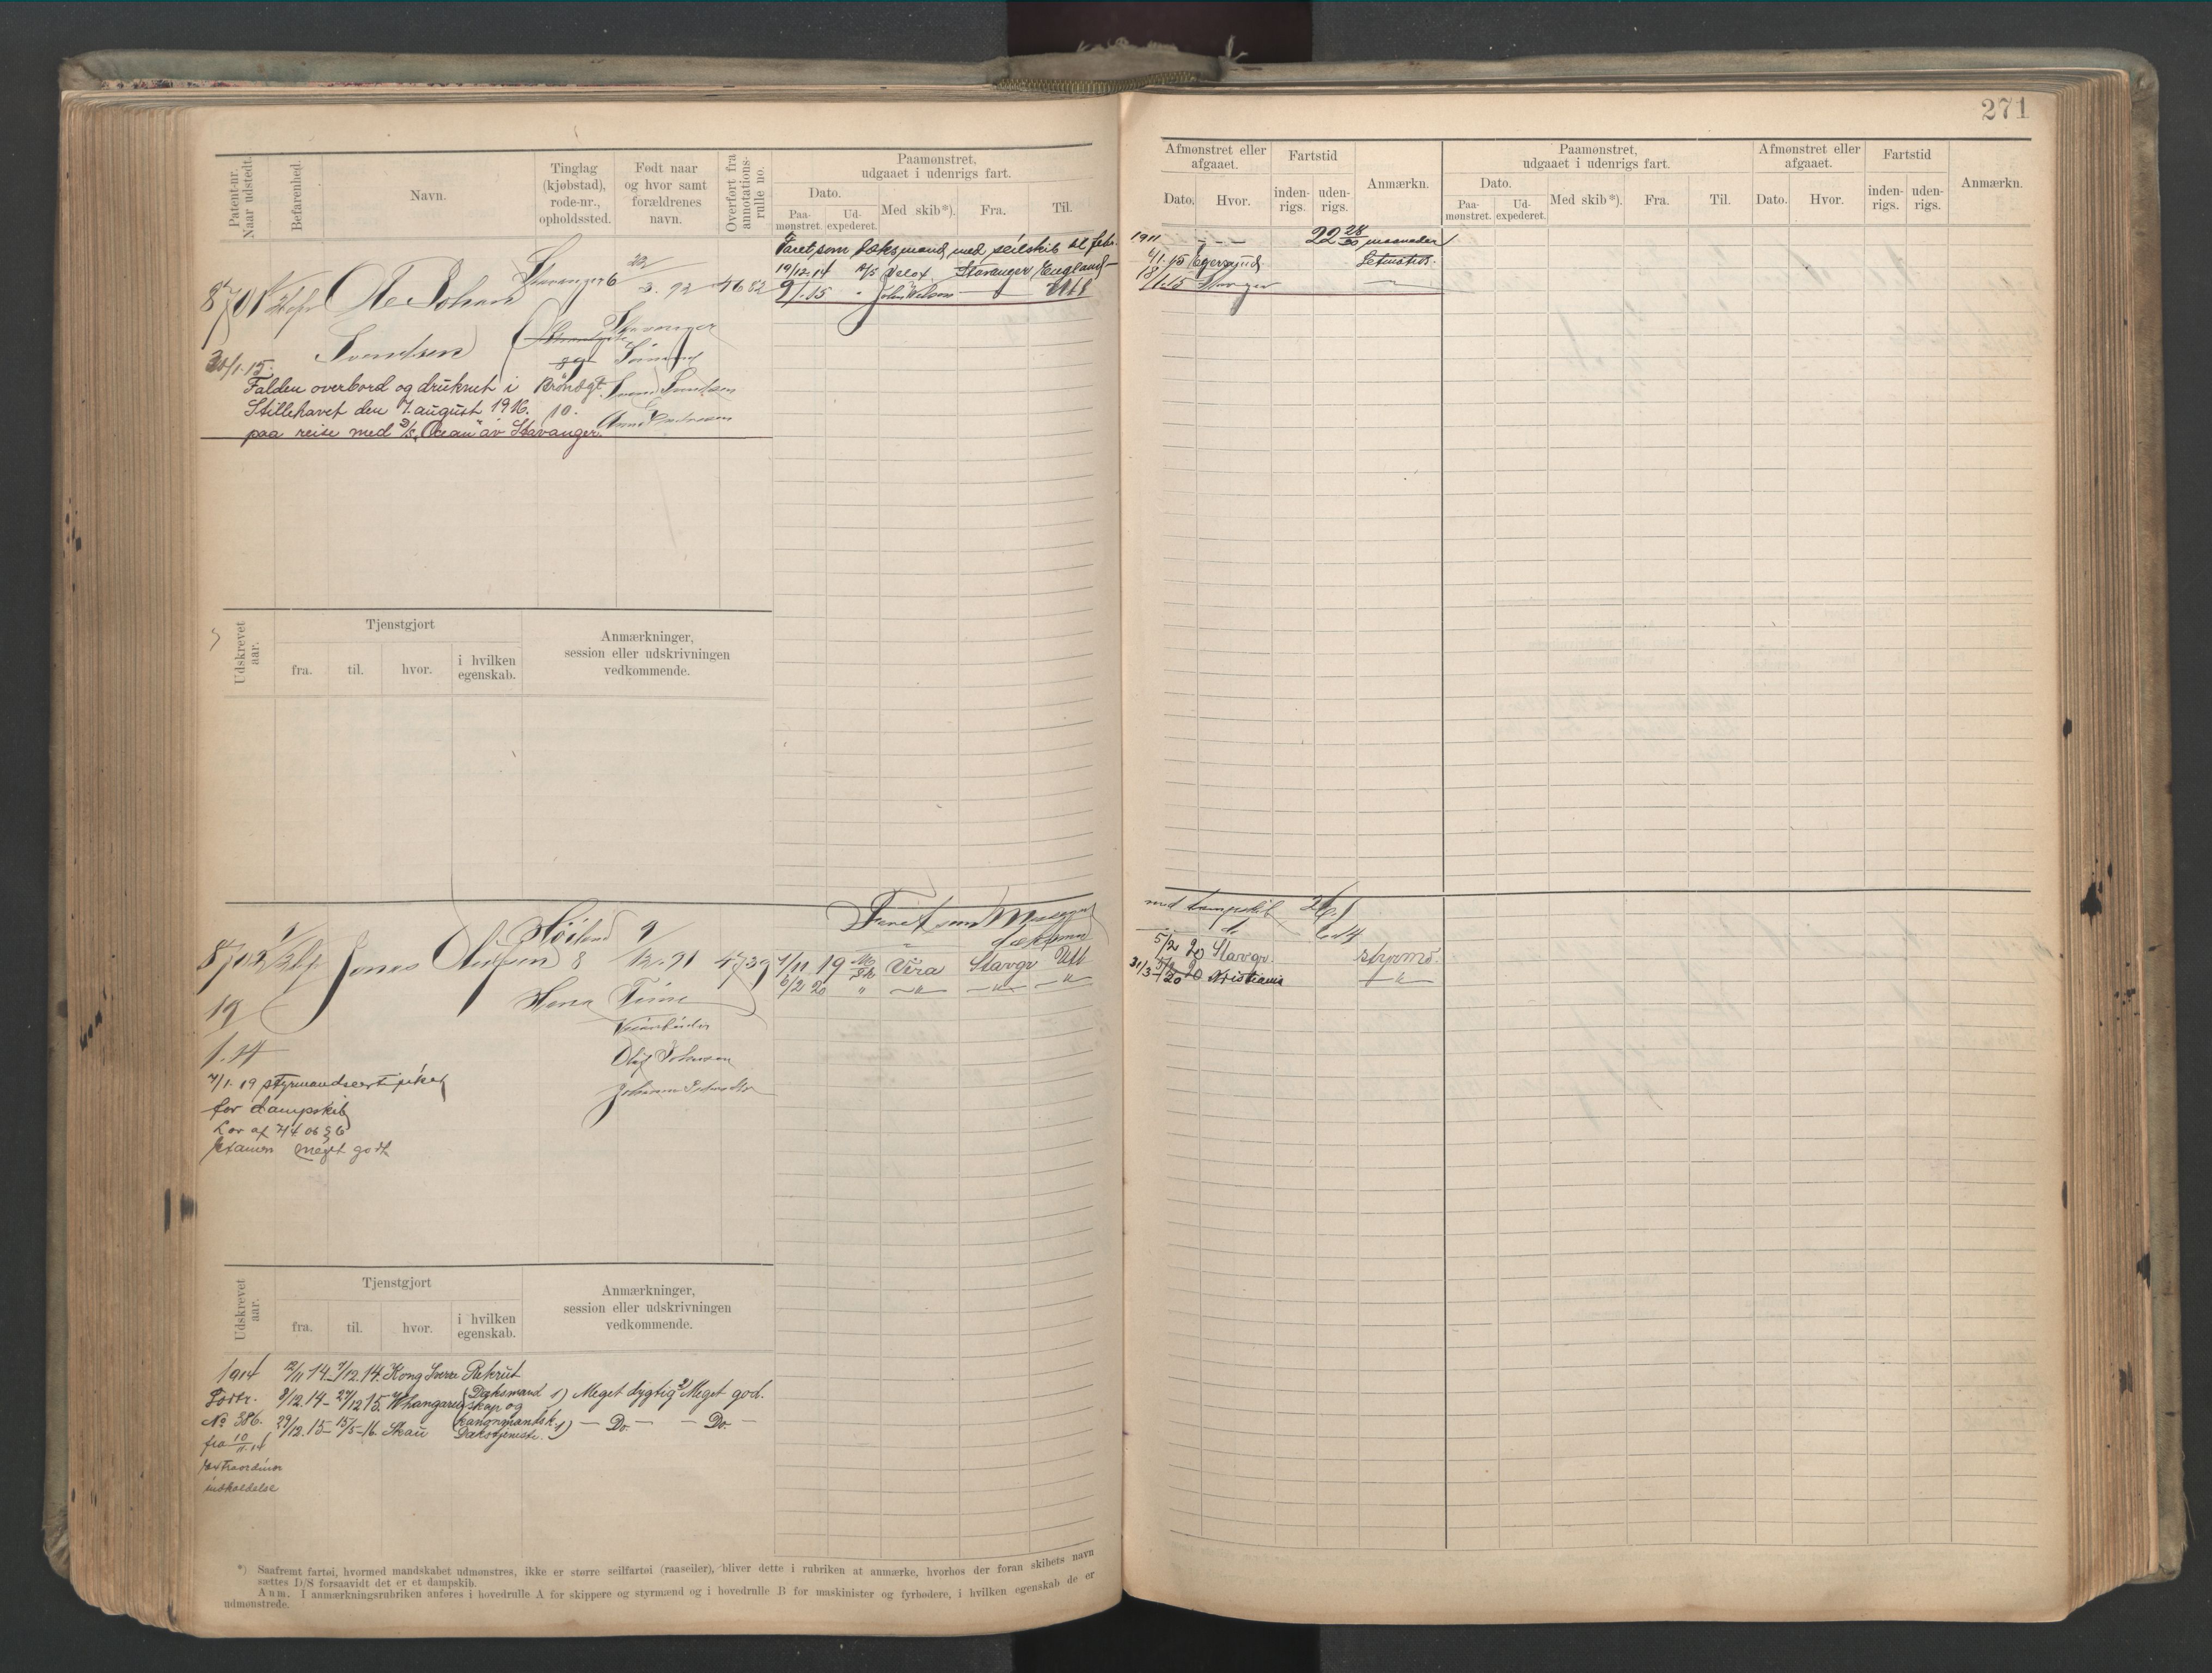 271
Patent-nr. Naar udstedt.
Befarenhed.
Navn.
Tinglag (kjøbstad), rode-nr., opholdssted.
Født naar og hvor samt forældrenes navn.
Overført fra annotations-rulle no.
Paamønstret, udgaaet i udenrigs fart.
Dato.
Paa-mønstret.
Ud-expederet.
Med skib*).
Fra.
Til.
Afmønstret eller afgaaet.
Dato.
Hvor.
Fartstid
inden-rigs.
uden-rigs.
Anmærkn.
Paamønstret, udgaaet i udenrigs fart.
Dato.
Paa-mønstret.
Ud-expederet.
Med skib*).
Fra.
Til.
Afmønstret eller afgaaet.
Dato.
Hvor.
Fartstid
inden-rigs.
uden-rigs.
Anmærkn.
Faret som dæksmand med seilskib til febr.
1911 - - - 22 28/30 maaneder
19/12.14 D/S Velox Stavanger England
4/1.15 Egersund Letmatros.
9/1.15 " John Wilson " Utl
18/1.15
8701 Ole Johan
Stavanger 6
22/3.92
4682
Svendsen
Stavanger
Svend Svendsen
30/1.15.
Falden overbord og druknet i
Brøndgt.
Stillehavet den 7. august 1916.
10.
paa reise med D/S "Ocean" av Stavanger.
Udskrevet aar.
Tjenstgjort
fra.
til.
hvor.
i hvilken egenskab.
Anmærkninger, session eller udskrivningen vedkommende.
Faret som
med dampskib
8702 Jonas
Høiland
8
9/12.91
4739
7/11 19 Vera Stavgr Utl
5/2 20 Stavgr. styrmd.
6/2 20 " " " "
31/3 20 Kristiania "
19
1.14
Time
7/1.19 styrmandscertifikat
for dampskib
Lov af 7/4 06 § 6
Examen meget godt
Udskrevet aar.
Tjenstgjort
fra.
til.
hvor.
i hvilken egenskab.
Anmærkninger, session eller udskrivningen vedkommende.
1914 12/11 14 - 7/12.14. Kong Sverre Rekrut
8/12.14 - 27/12 15. Dæksmand 1) Meget dygtig 2) Meget god.
skap og
No 386.
29/12.15 - 15/5-16 Skau
1) - Do. - - Do. -
fra 10/11.14
Extraordinær
indkaldelse
*) Saafremt fartøi, hvormed mandskabet udmønstres, ikke er større seilfartøi (raaseiler), bliver dette i rubriken at anmærke, hvorhos der foran skibets navn
sættes D/S forsaavidt det er et dampskib.
Anm. I anmærkningsrubriken anføres i hovedrulle A for skippere og styrmænd og i hovedrulle B for maskinister og fyrbødere, i hvilken egenskab de er
udmønstrede.